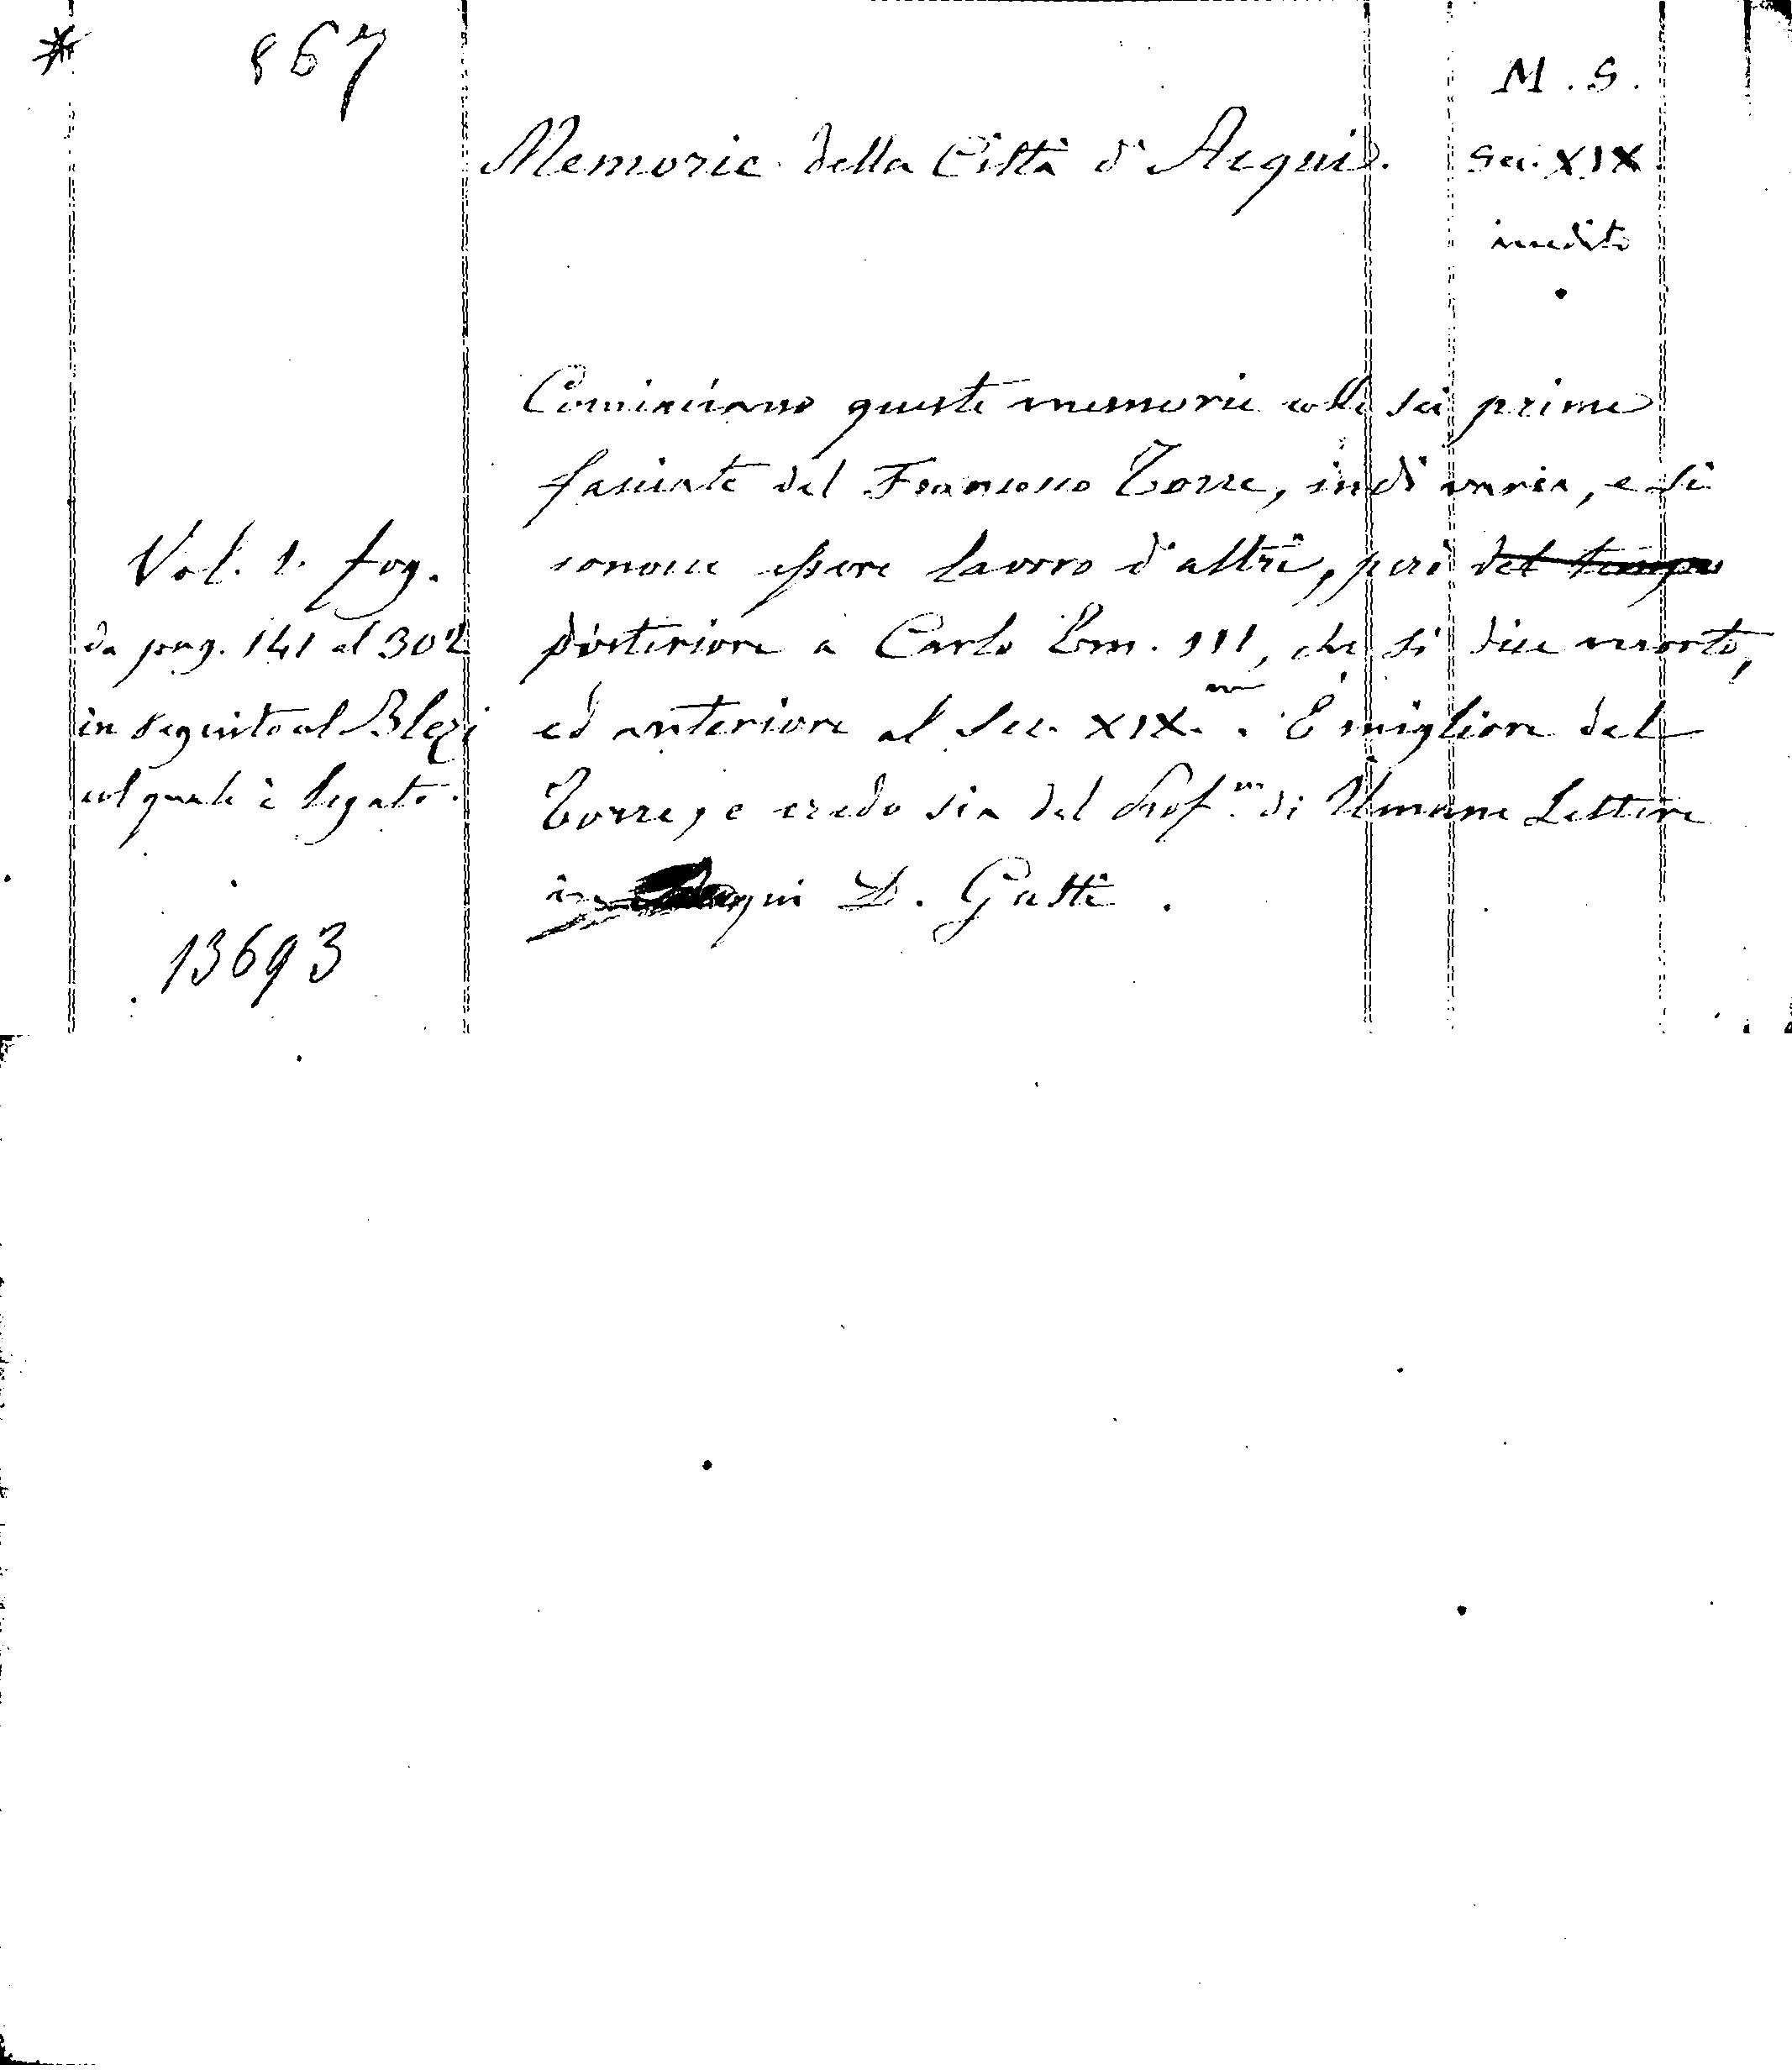 * 867
M. S.
Memorie della Città d'Acqui.
Sec. XIX
inedito
Cominciano queste memorie colle sei prime
facciate del Francesco Torre, indi varia, e si
conosce essere lavoro d'altri, però del tempo
posteriore a Carlo Em. III, che si dice morto,
ed anteriore al Sec. XIX.mo. È migliore del
Torre, e credo sia del Prof.re di Umane Lettere
in Acqui D. Gatti.
Vol. 1. fog.
da pag. 141 al 302
in seguito al Blezi
col quale è legato.
13693